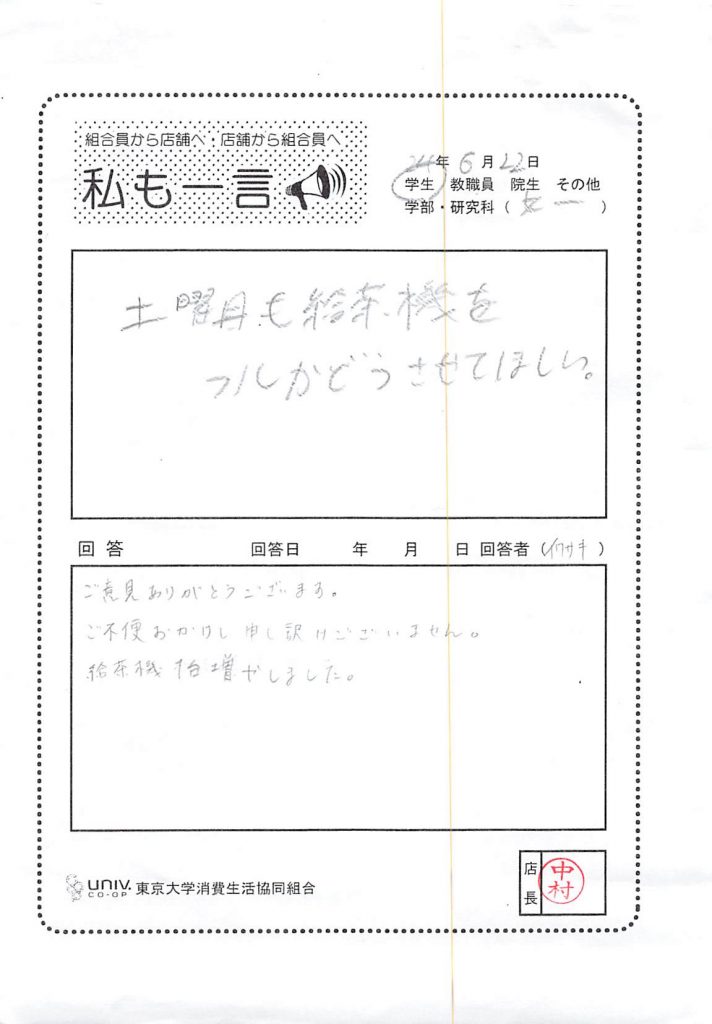 組合員から店舗へ・店舗から組合員へ
私も一言
24年6月22日
学生 教職員 院生 その他
学部・研究科(文一)
土曜日も給茶機を
フルかどうさせてほしい。
回答 回答日 年 月 日 回答者(イワサキ)
ご意見ありがとうございます。
ご不便おかけし申し訳けございません。
給茶機1台増やしました。
UNIV. CO-OP 東京大学消費生活協同組合
店長 中村